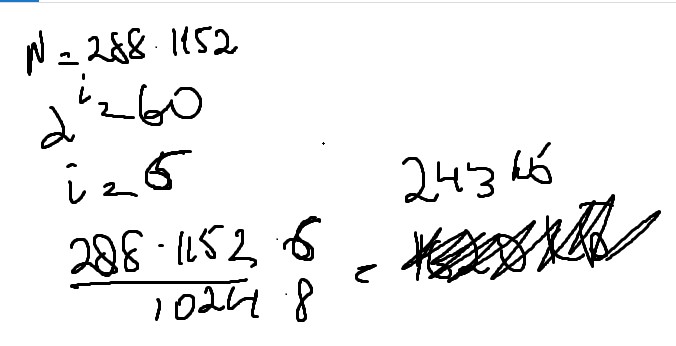 N = 288 · 1152
2^i = 60
i = 6
288 · 1152 · 6 / 1024 · 8 = 243 кб